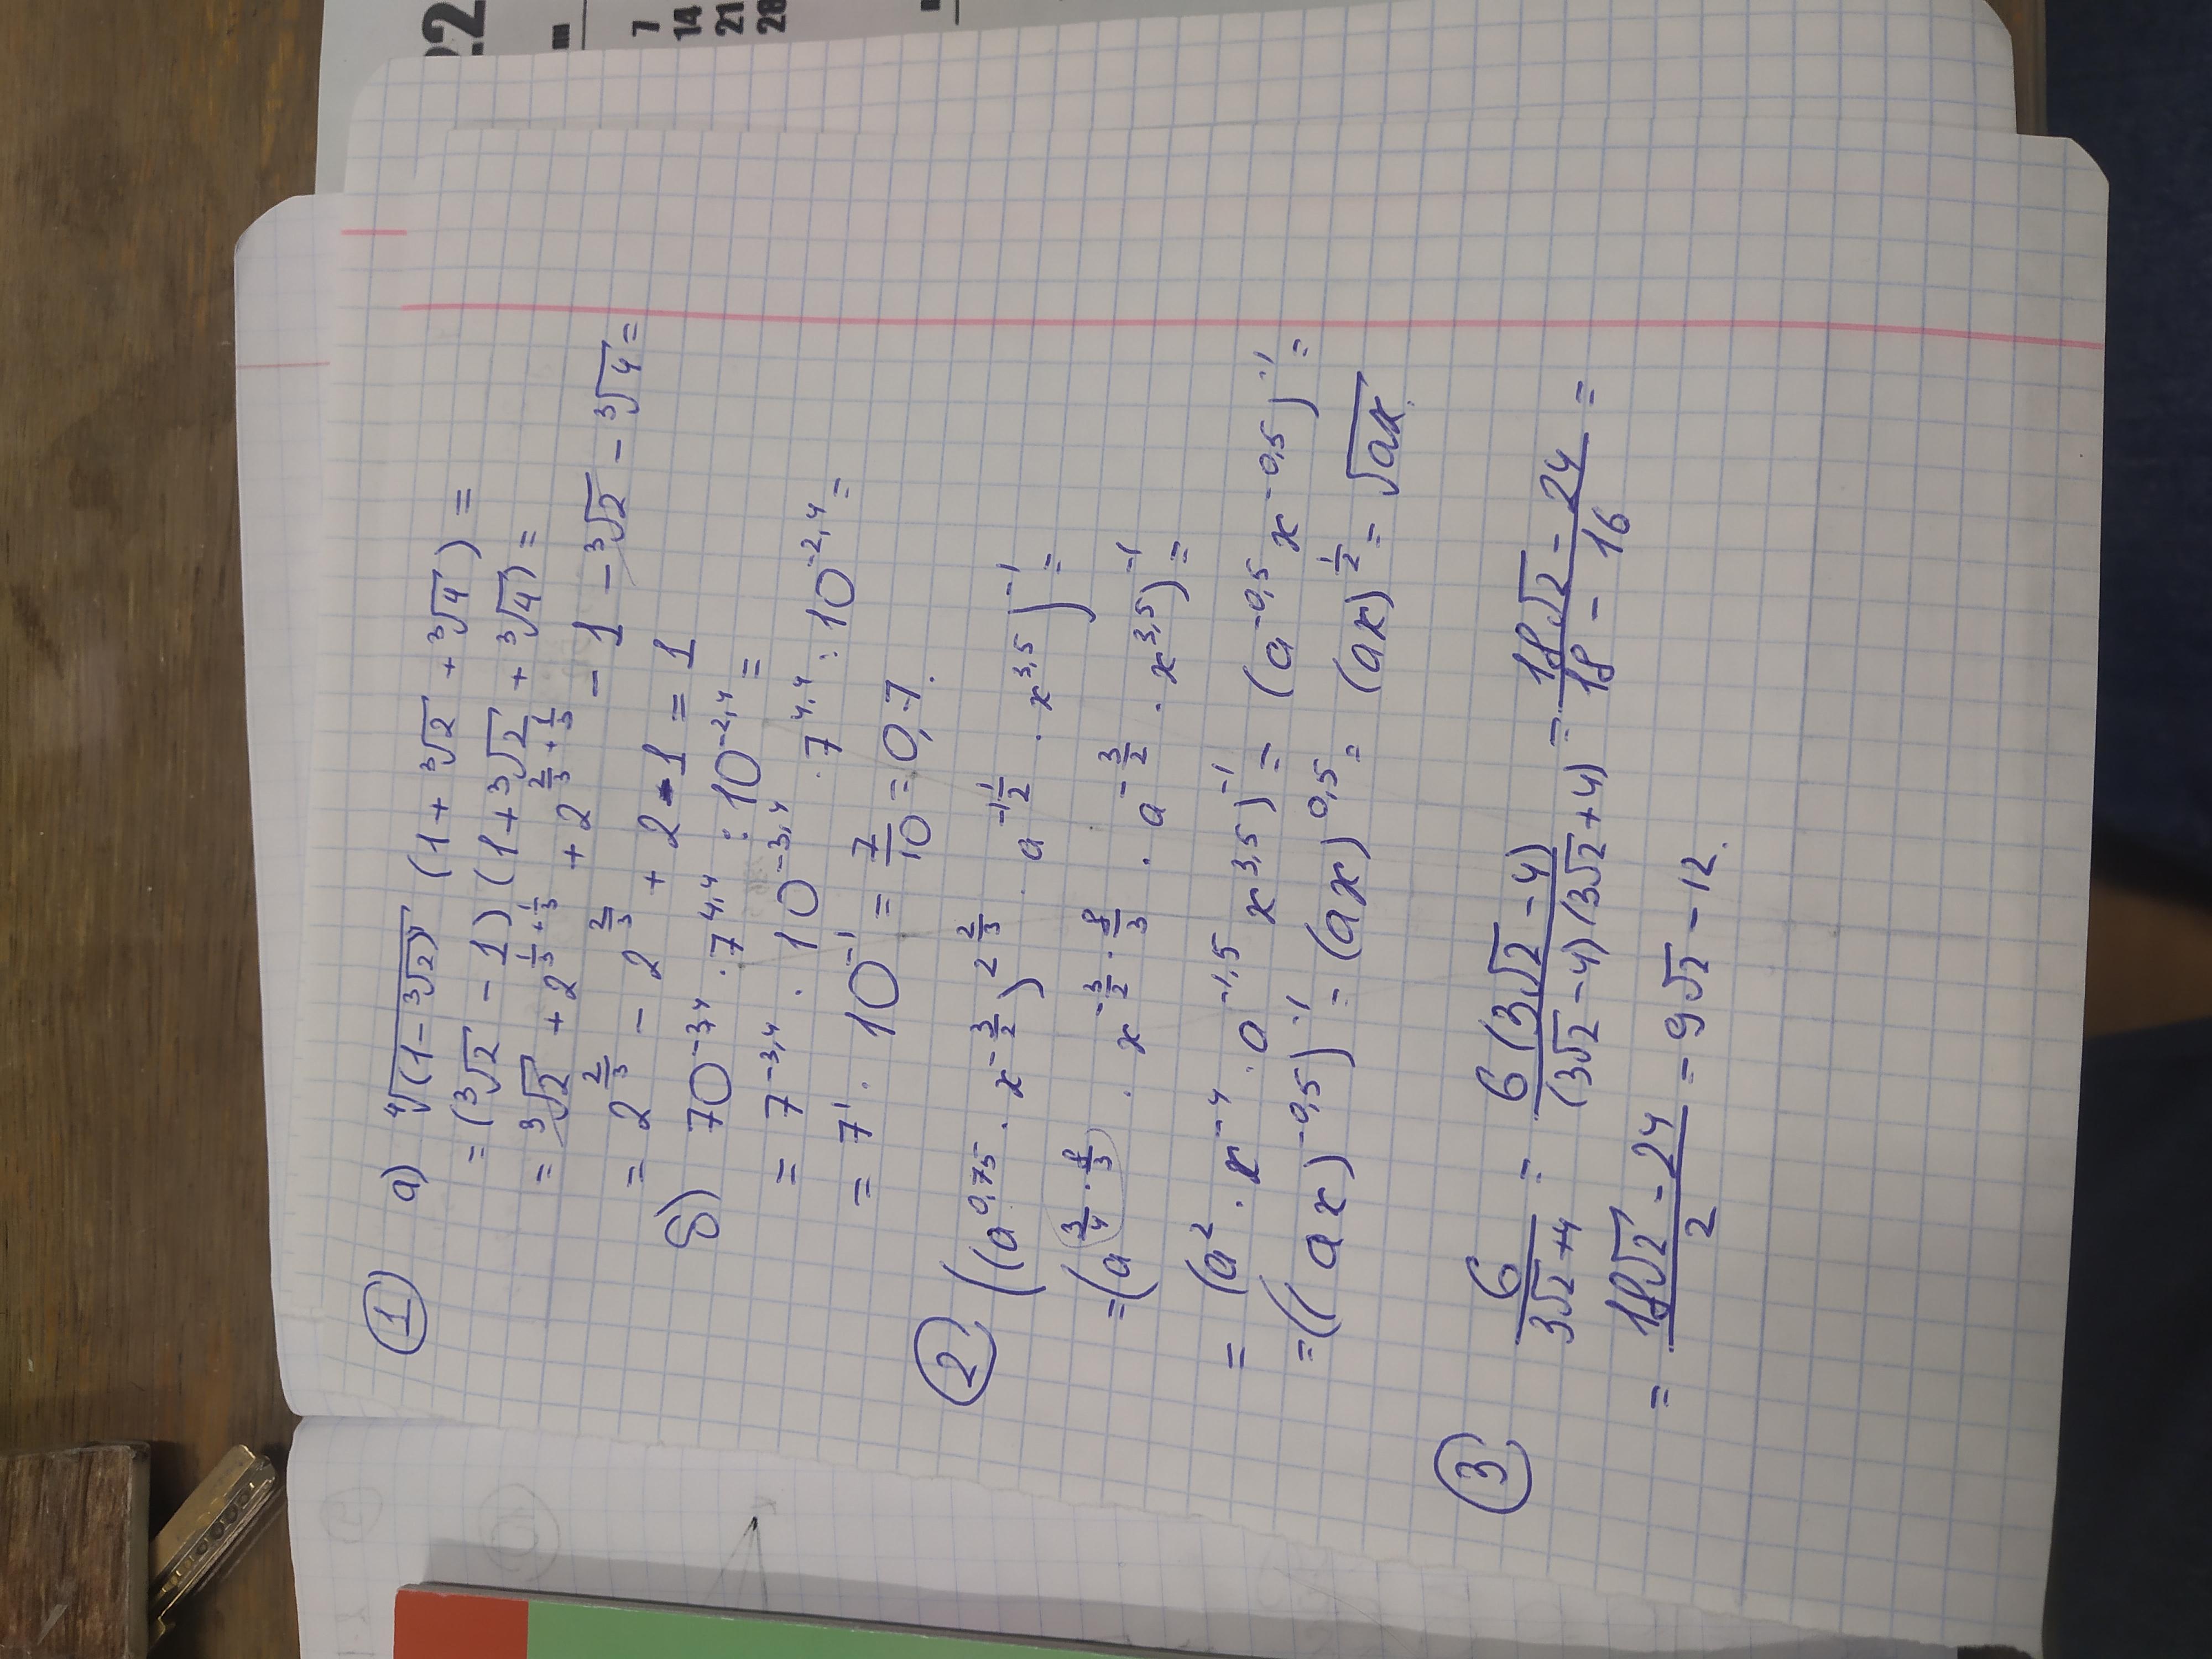 22
m
7
14
21
28
① а) ⁴√(1-³√2)⁴ (1+³√2+³√4) =
= (³√2 - 1)(1+³√2 + ³√4) =
= ³√2 + 2^(1/3+1/3) + 2^(2/3+1/3) - 1 - ³√2 - ³√4 =
= 2^(2/3) - 2^(2/3) + 2 - 1 = 1
б) 70^(-3,4) · 7^(4,4) : 10^(-2,4) =
= 7^(-3,4) · 10^(-3,4) · 7^(4,4) : 10^(-2,4) =
= 7¹ · 10^(-1) = 7/10 = 0,7.
② ((a^(0,75) · x^(-3/2))^(2 2/3) · a^(-1 1/2) · x^(3,5))^(-1) =
= (a^(3/4 · 8/3) · x^(-3/2 · 8/3) · a^(-3/2) · x^(3,5))^(-1) =
= (a² · x^(-4) · a^(-1,5) x^(3,5))^(-1) = (a^(-0,5) x^(-0,5))^(-1) =
= ((ax)^(-0,5))^(-1) = (ax)^(0,5) = (ax)^(1/2) = √ax.
③ 6/(3√2+4) = 6(3√2-4)/((3√2-4)(3√2+4)) = (18√2-24)/(18-16) =
= (18√2-24)/2 = 9√2 - 12.